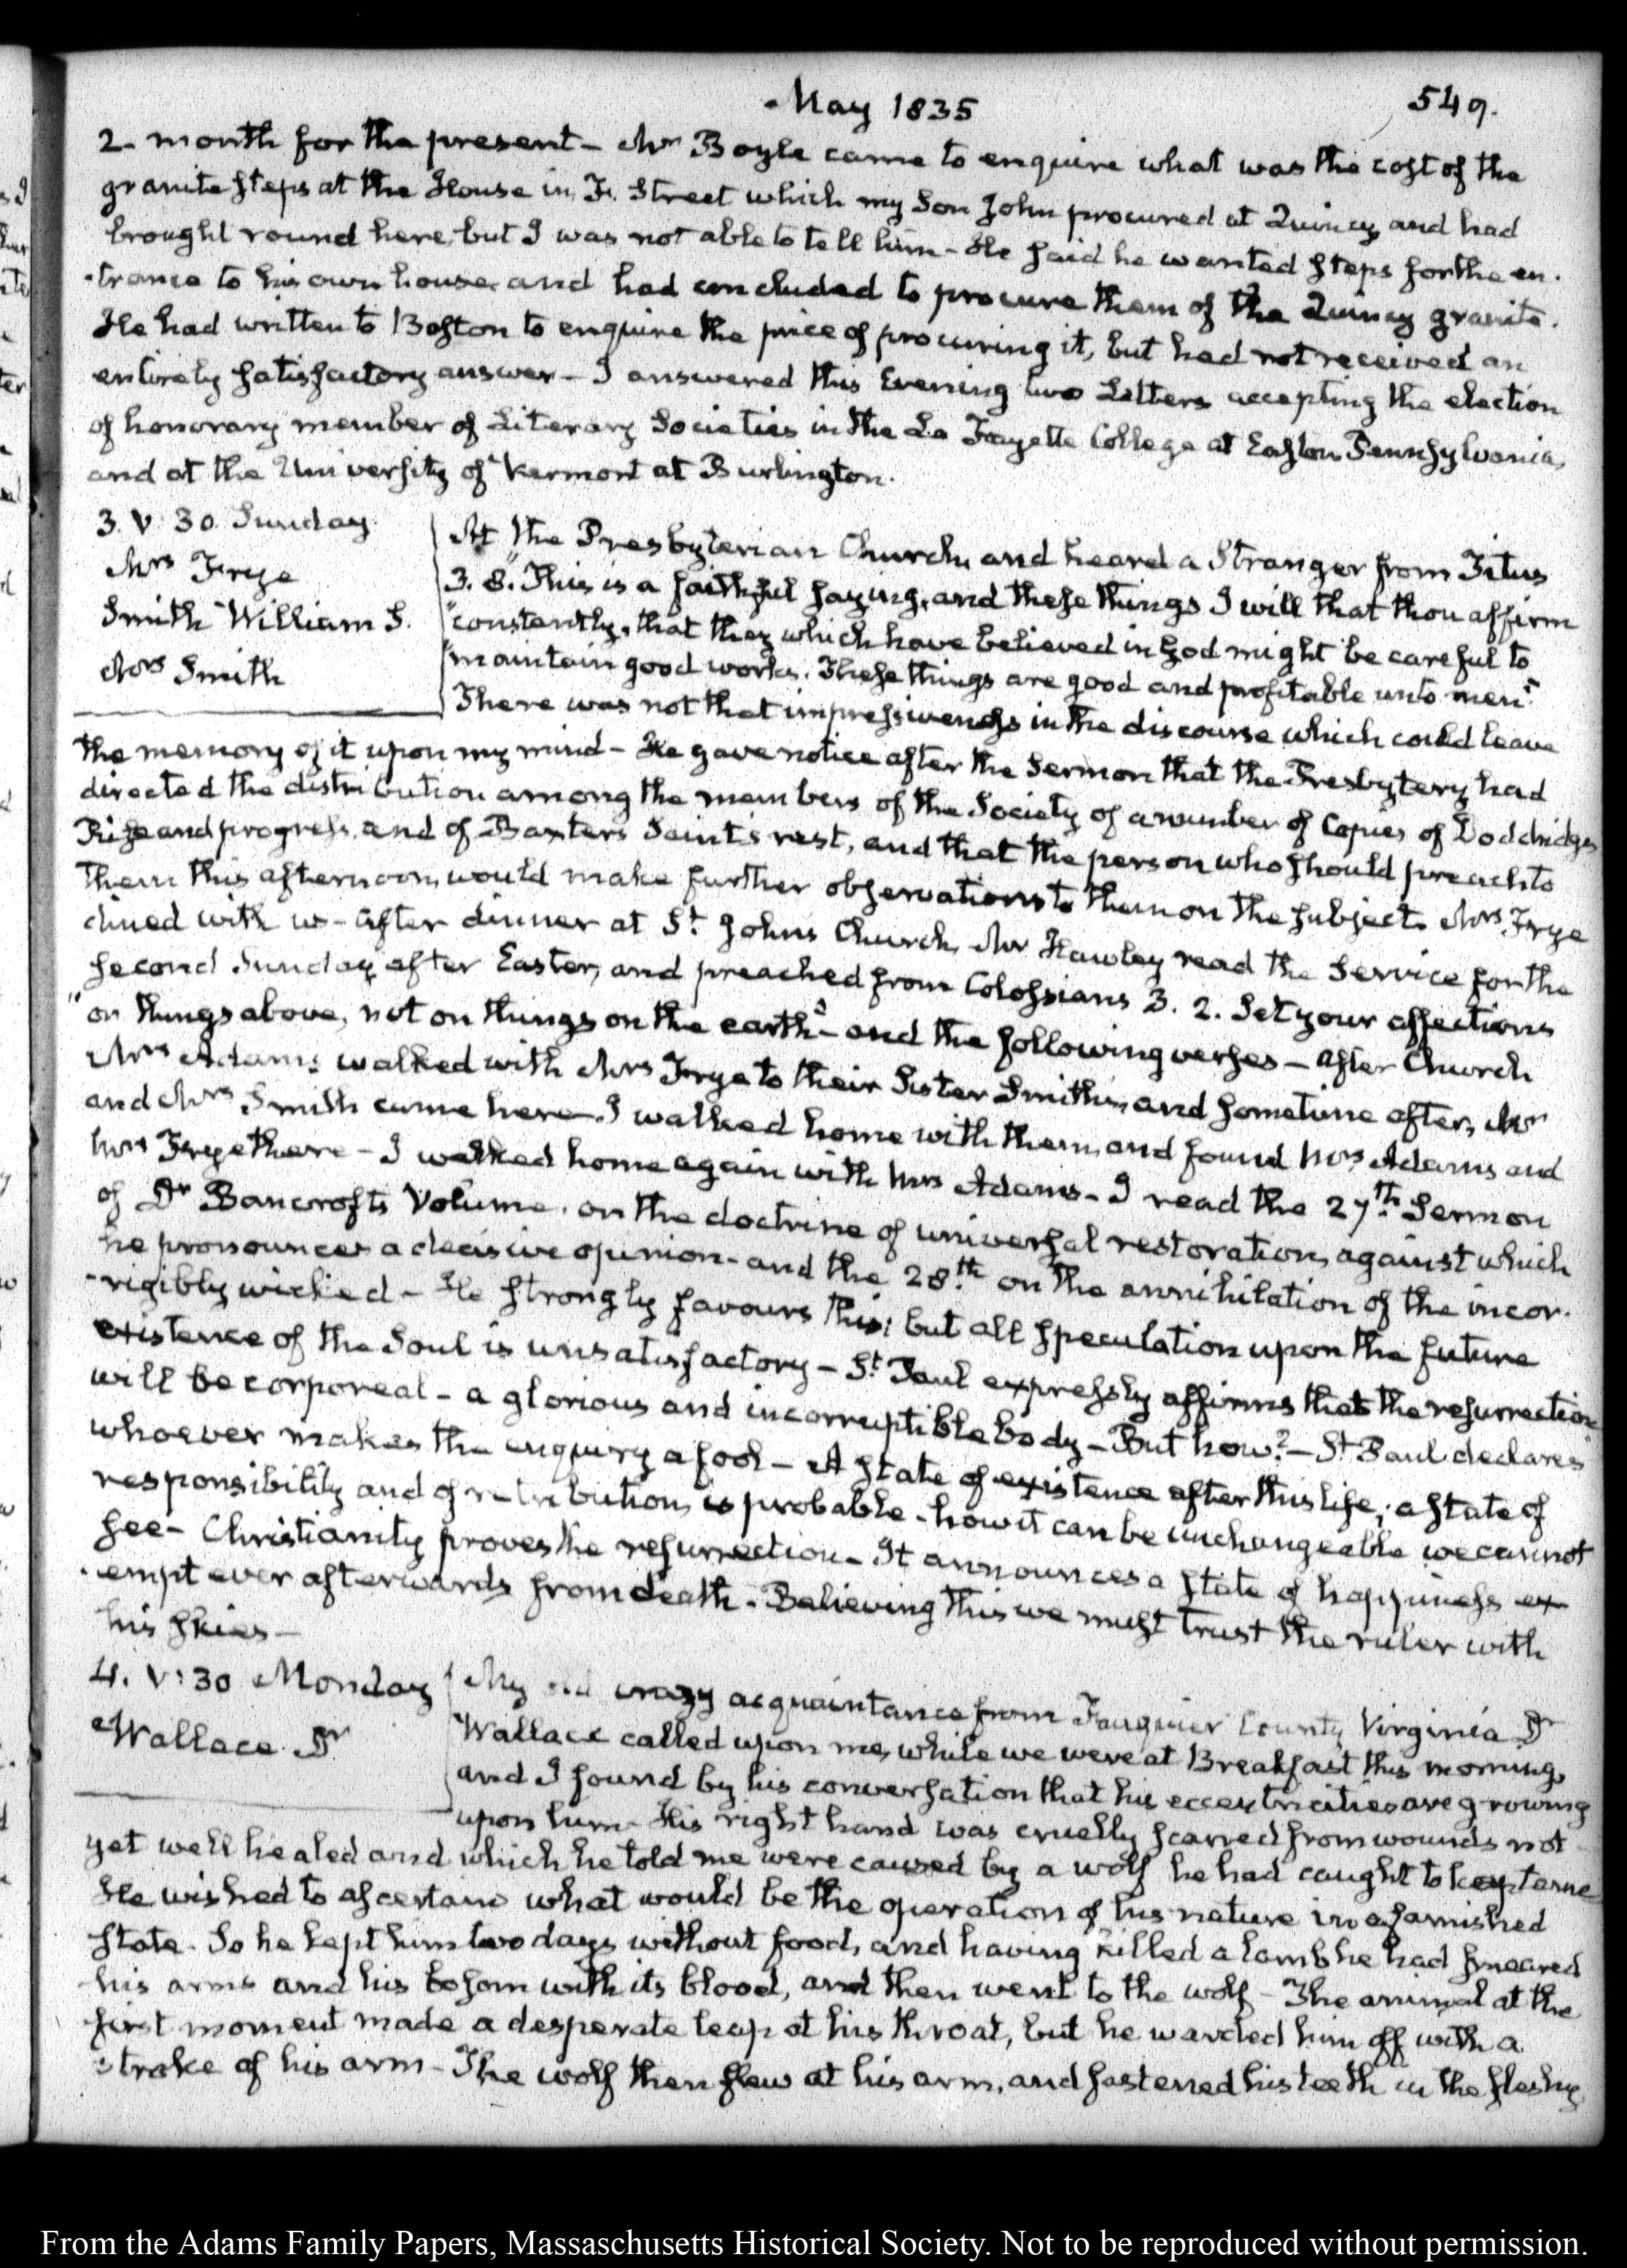 May 1835
549.
2. month for the present - Mr Boyle came to enquire what was the cost of the
granite steps at the House in F. Street which my Son John procured at Quincy and had
brought round here, but I was not able to tell him - He said he wanted steps for the en-
-trance to his own house and had concluded to procure them of the Quincy granite.
He had written to Boston to enquire the price of procuring it, but had not received an
entirely satisfactory answer - I answered this Evening two Letters accepting the election
of honorary member of Literary Societies in the La Fayette College at Easton Pennsylvania,
and at the University of Vermont at Burlington.
3. V. 30. Sunday
Mrs Frye
Smith William S.
Mrs Smith
At the Presbyterian Church, and heard a Stranger from Titus
3. 8. "This is a faithful saying, and these things I will that thou affirm
"constantly, that they which have believed in God might be careful to
"maintain good works. These things are good and profitable unto men."
There was not that impressiveness in the discourse which could leave
the memory of it upon my mind - He gave notice after the Sermon that the Presbytery had
directed the distribution among the members of the Society of a number of Copies of Doddridge's
Rise and progress, and of Baxter's Saint's rest, and that the person who should preach to
them this afternoon, would make further observations to them on the subject. Mrs Frye
dined with us - After dinner at St. Johns Church, Mr Hawley read the Service for the
second Sunday after Easter, and preached from Colossians 3. 2. Set your affections
"on things above, not on things on the earth" - and the following verses - After Church
Mrs Adams walked with Mrs Frye to their Sister Smith's, and sometime after, Mr
and Mrs Smith came here. I walked home with them, and found Mrs Adams and
Mrs Frye there - I walked home again with Mrs Adams - I read the 27th. Sermon
of Dr Bancroft's Volume, on the doctrine of universal restoration, against which
he pronounces a decisive opinion - and the 28th. on the annihilation of the incor-
-rigibly wicked - He strongly favours this; but all speculation upon the future
existence of the Soul is unsatisfactory - St. Paul expressly affirms that the resurrection
will be corporeal - a glorious and incorruptible body - But how? - St Paul declares
whoever makes the enquiry a fool - A state of existence after this life; a state of
responsibility and of retribution, is probable - how it can be unchangeable we cannot
see - Christianity proves the resurrection - It announces a state of happiness ex-
-empt ever afterwards from death - Believing this we must trust the ruler with
his skies -
4. V: 30 Monday
Wallace Dr
My old crazy acquaintance from Fauquier County, Virginia Dr
Wallace called upon me, while we were at Breakfast this morning,
and I found by his conversation that his eccentricities are growing
upon him - His right hand was cruelly scarred from wounds not
yet well healed and which he told me were caused by a wolf he had caught to keep tame
He wished to ascertain what would be the operation of his nature in a famished
state. So he kept him two days without food, and having killed a lamb he had smeared
his arms and his bosom with its blood, and then went to the wolf - The animal at the
first moment made a desperate leap at his throat, but he warded him off with a
stroke of his arm - The wolf then flew at his arm, and fastened his teeth in the fleshy
From the Adams Family Papers, Massachusetts Historical Society. Not to be reproduced without permission.